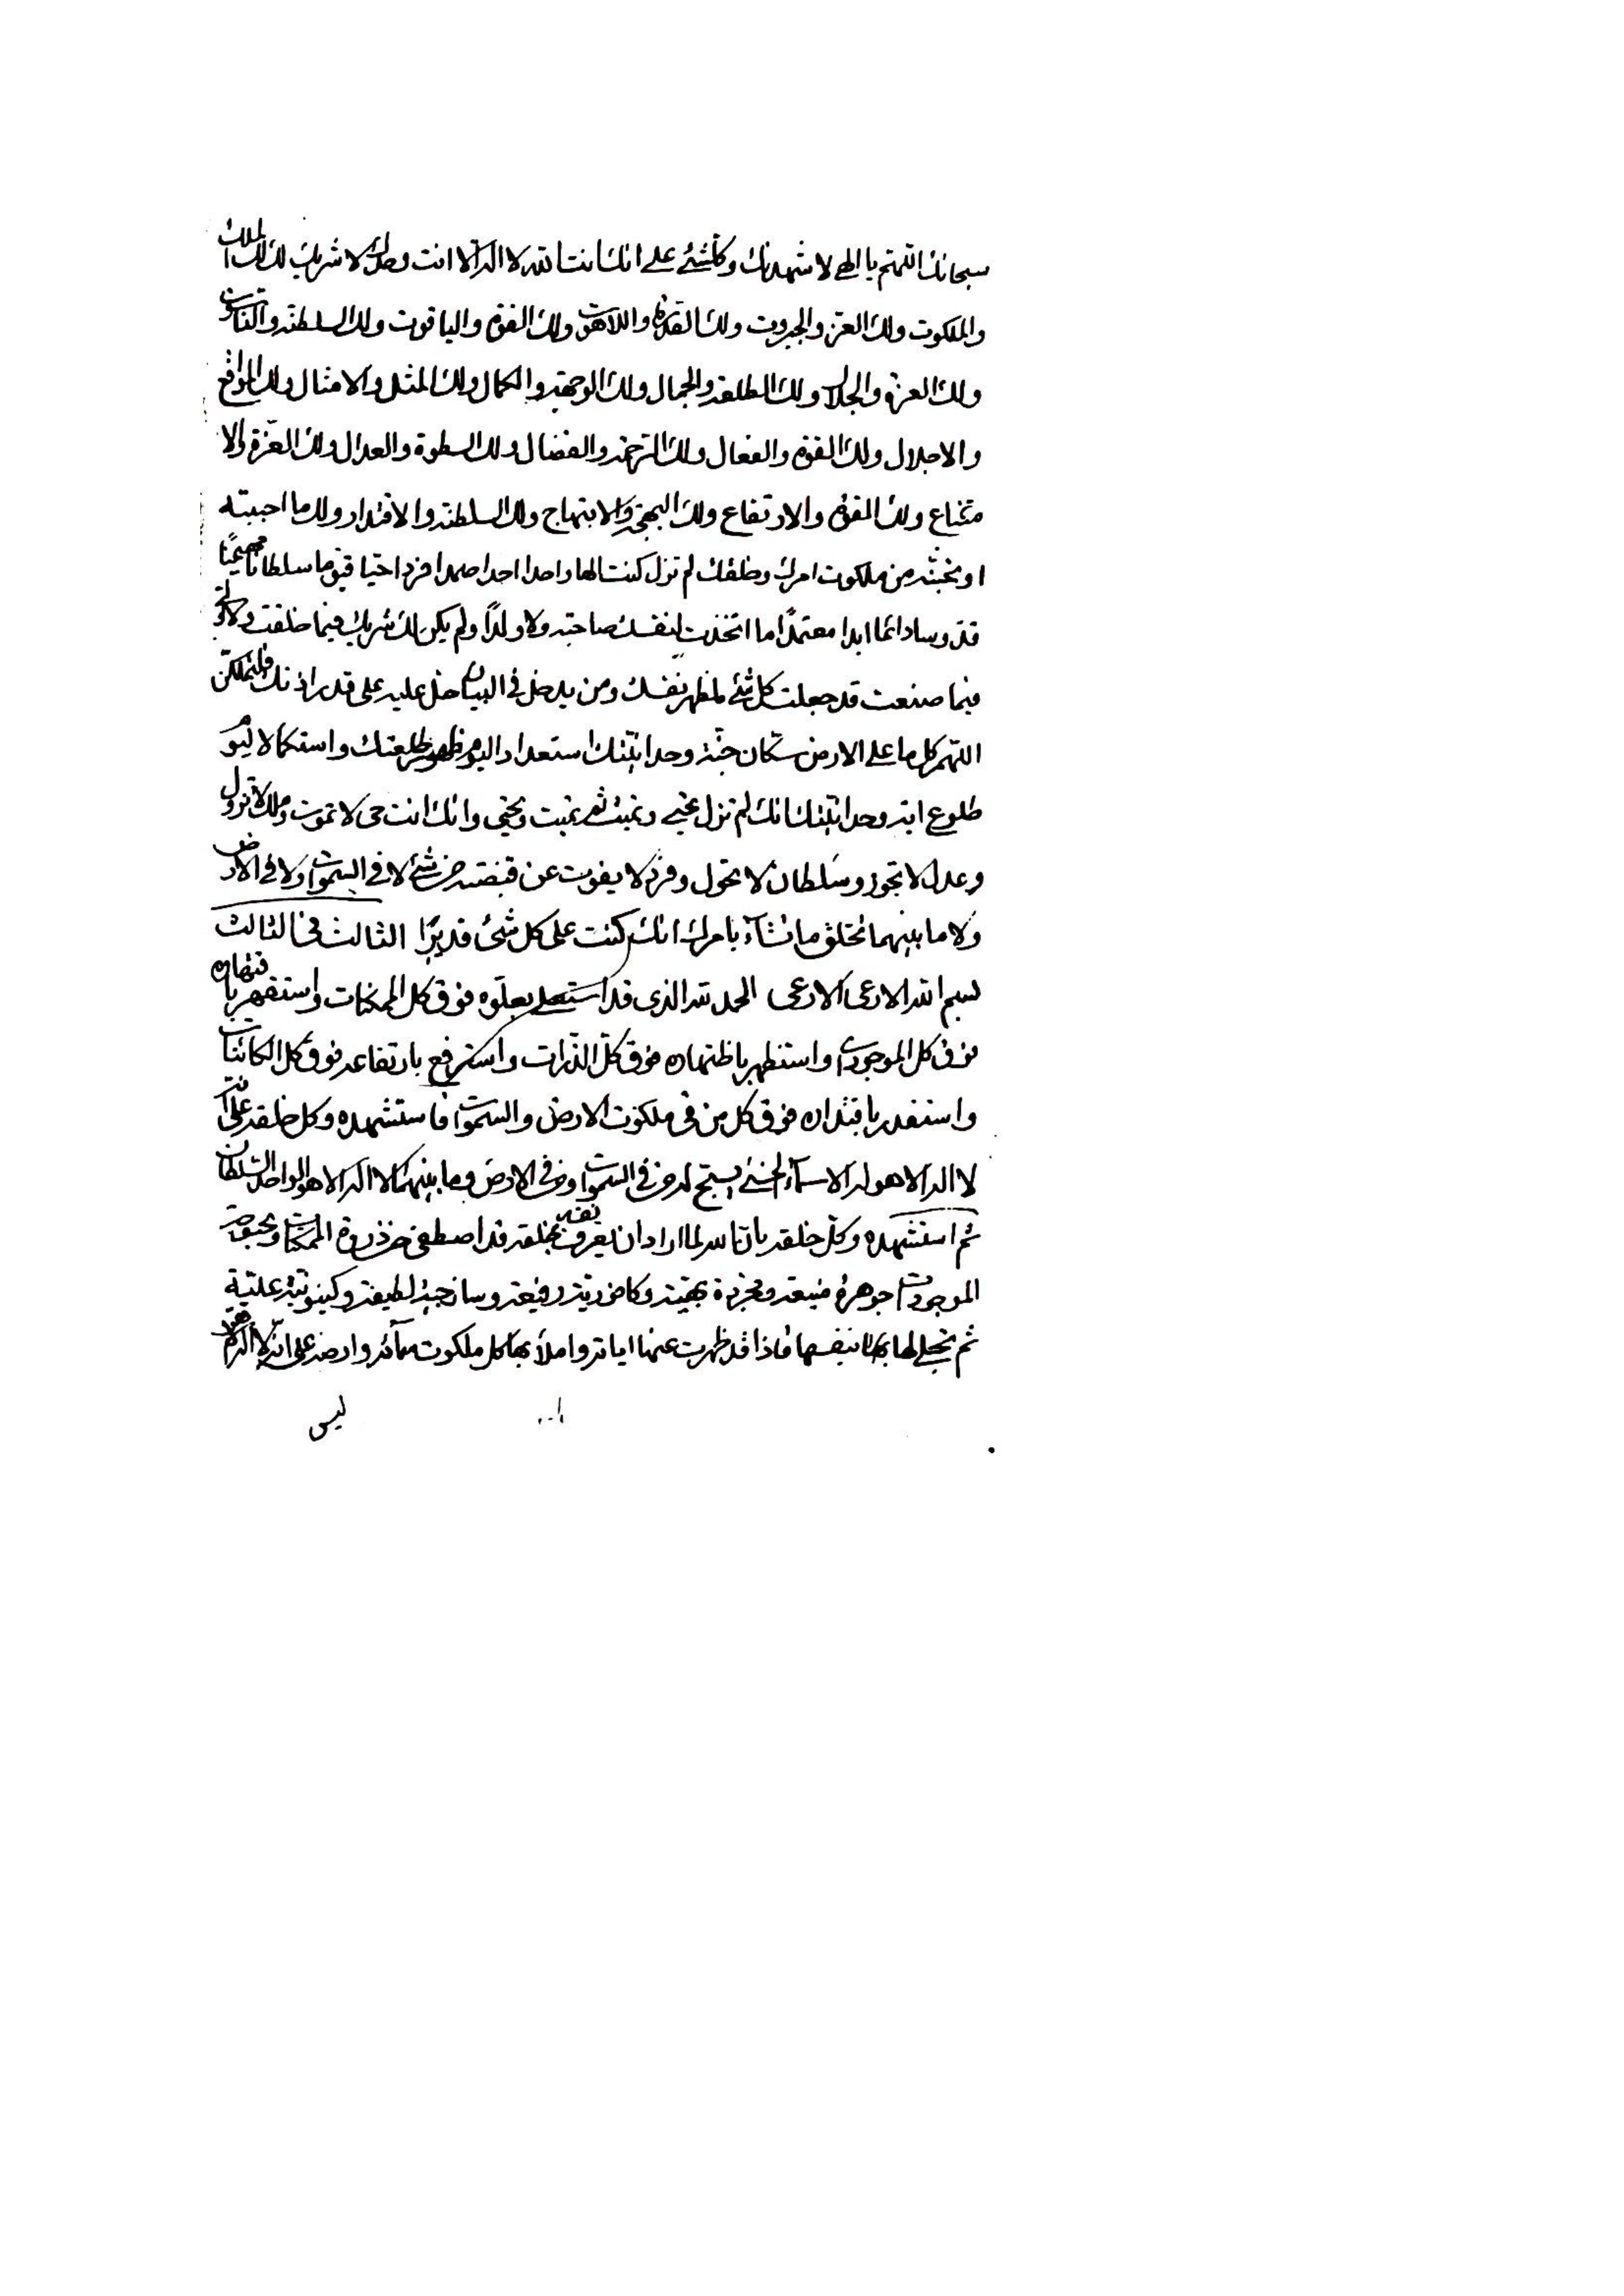 سبحانك اللهم يا الهي لاشهدنك وكلشئ على انك انت الله لا اله الا انت وحدك لا شريك لك لك الملك
والملكوت ولك العز والجبروت ولك القدرة واللاهوت ولك القوة والياقوت ولك السلطنة والناسوت
ولك العزة والجلال ولك الطلعة والجمال ولك الوجهة والكمال ولك المثل والامثال ولك المواقع
والاجلال ولك القوة والفعال ولك الرحمة والفضال ولك السطوة والعدال ولك العزة والا
متناع ولك القوة والارتفاع ولك البهجة والابتهاج ولك السلطنة والاقتدار ولك ما احببته
او تحبنه من ملكوت امرك وخلقك لم تزل كنت الها واحدا احدا صمدا فردا حيا قيوما سلطانا مهيمنًا
قدوسا دائما ابدا معتمدًا ما اتخذت لنفسك صاحبة ولا ولدًا ولم يكن لك شريك فيما خلقت ولا ولي
فيما صنعت قد جعلت كل شئ لمظهر نفسك ومن يدخل في البيان خل عليه على قدر اذنك فلتملكن
اللهم كل ما على الارض سكان جنة وحدانيتك استعدادا ليوم ظهور طلعتك واستكمالا ليوم
طلوع اية وحدانيتك انك لم تزل تحيي وتميت ثم تميت وتحيي وانك انت حي لا تموت وملك لا تزول
وعدل لا تجور وسلطان لا تحول وفرد لا يفوت عن قبضته من شئ لا في السموات ولا في الارض
ولا ما بينهما تخلق ما تشآء بامرك انك كنت على كل شئ قديرًا الثالث في الثالث
بسم الله الارعى الارعى الحمد لله الذي قد استعلى بعلوه فوق كل الممكنات واستقهر باقتهاره
فوق كل الموجودات واستظهر باظتهاره فوق كل الذرات واسترفع بارتفاعه فوق كل الكائنات
واستقدر باقتداره فوق كل من في ملكوت الارض والسموات فاستشهده وكل خلقه على انه
لا اله الا هو له الاسمآء الحسنى يسبح له من في السموات ومن في الارض وما بينهما لا اله الا هو الواحد السلطان
ثم استشهده وكل خلقه بان الله لما اراد ان يعرف نفسه بخلقه قد اصطفى من ذروة الممكنات وبحبوحة
الموجودات جوهرة منيعة ومجردة بهية وكافورية رفيعة وساذجية لطيفة وكينونية علية
ثم تجلى لها بها بنفسها فاذا قد ظهرت عنها اياته واملأ بها كل ملكوت سمآئه وارضه على انه لا اله الا هو
ليس